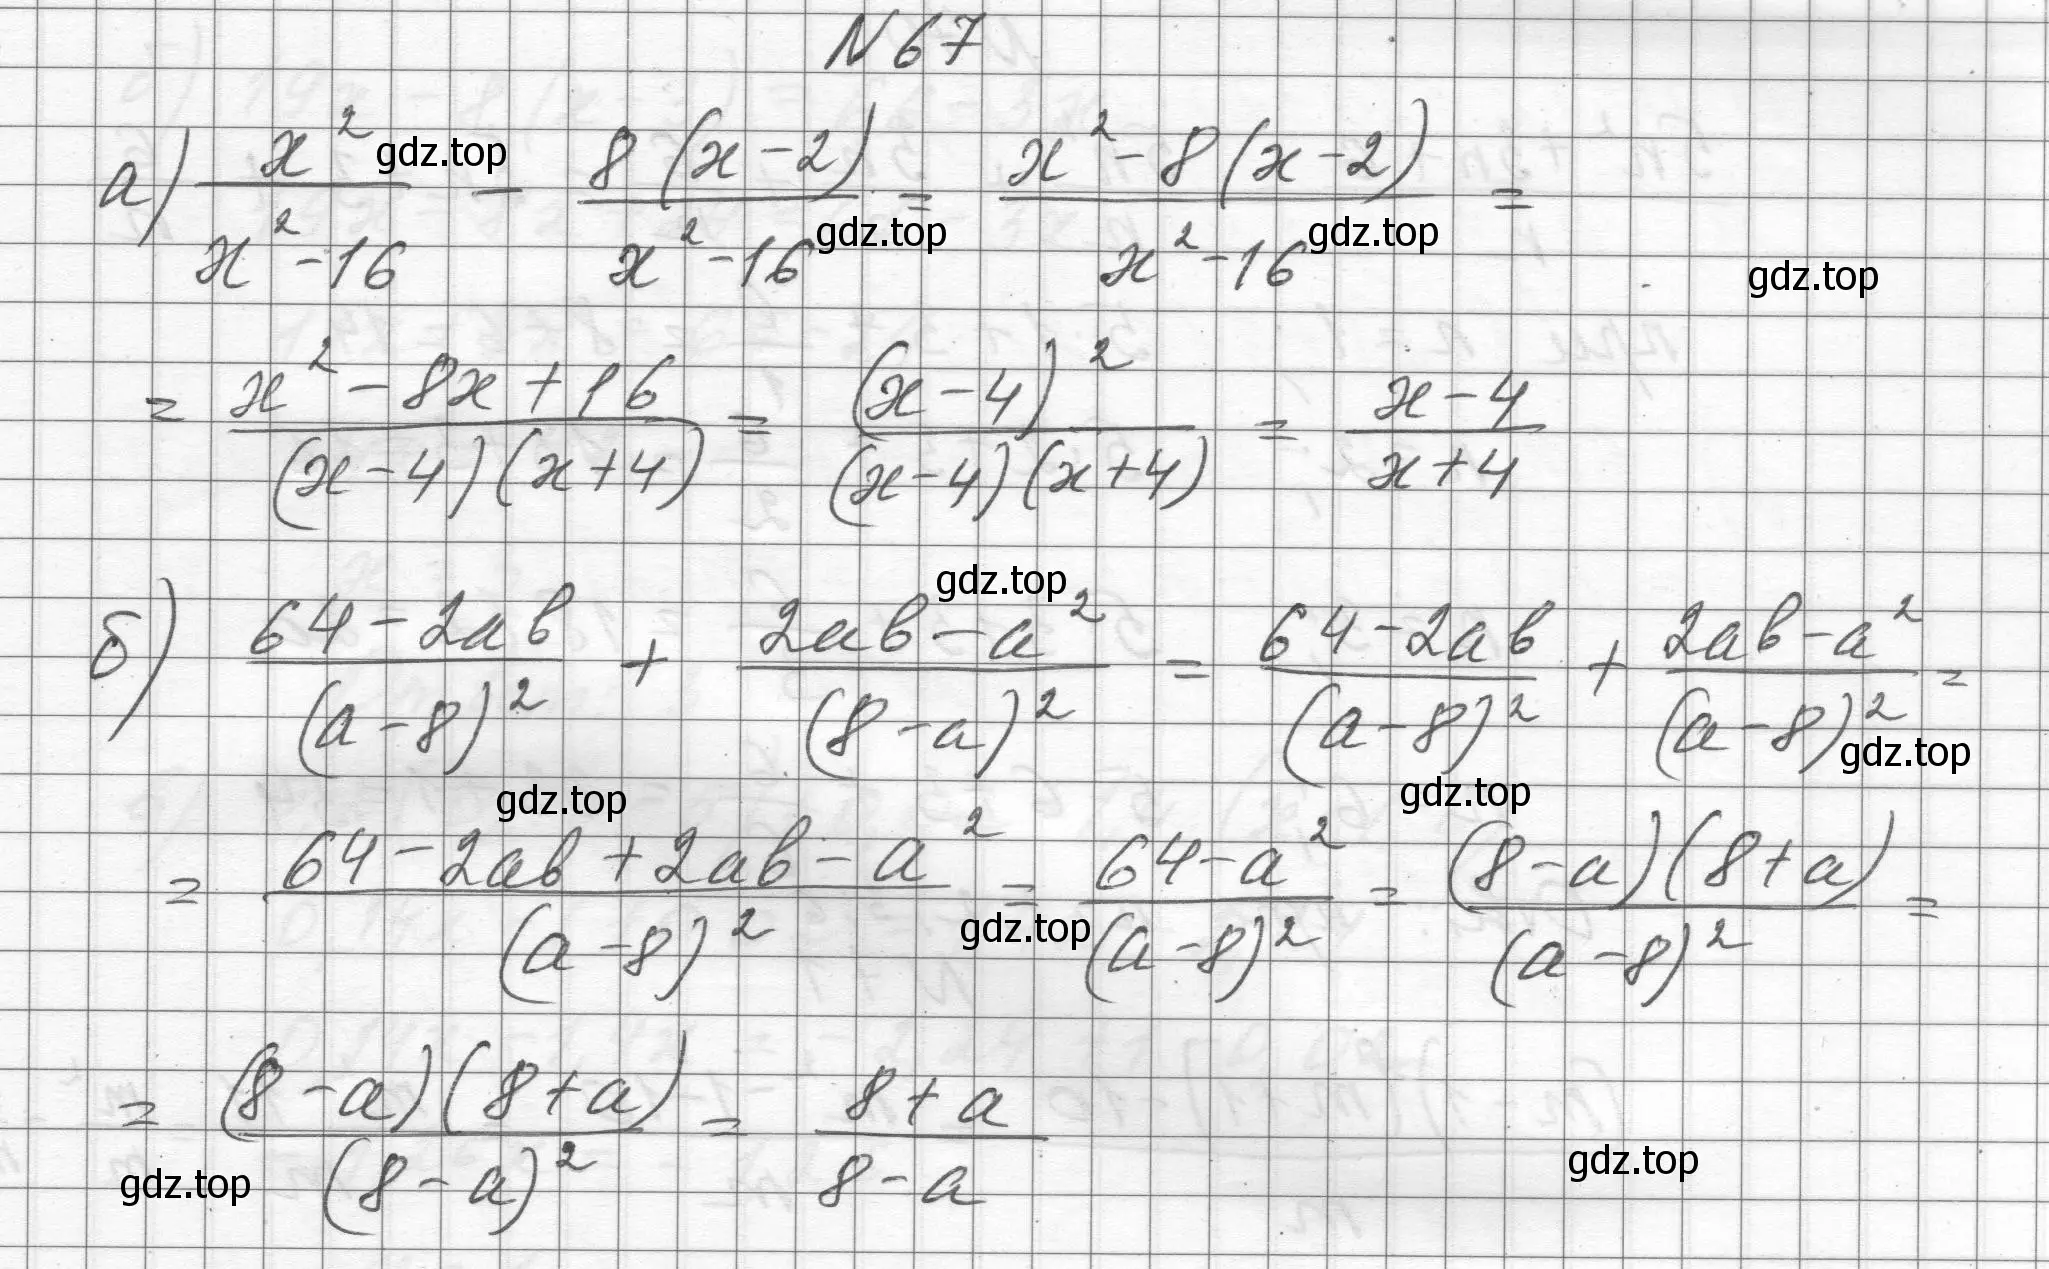 N 67
а) x²/(x²-16) - 8(x-2)/(x²-16) = (x²-8(x-2))/(x²-16) =
= (x²-8x+16)/((x-4)(x+4)) = (x-4)²/((x-4)(x+4)) = (x-4)/(x+4)
б) (64-2ab)/(a-8)² + (2ab-a²)/(8-a)² = (64-2ab)/(a-8)² + (2ab-a²)/(a-8)² =
= (64-2ab+2ab-a²)/(a-8)² = (64-a²)/(a-8)² = (8-a)(8+a)/(a-8)² =
= (8-a)(8+a)/(8-a)² = (8+a)/(8-a)
gdz.top
gdz.top
gdz.top
gdz.top
gdz.top
gdz.top
gdz.top
gdz.top
gdz.top
gdz.top
gdz.top